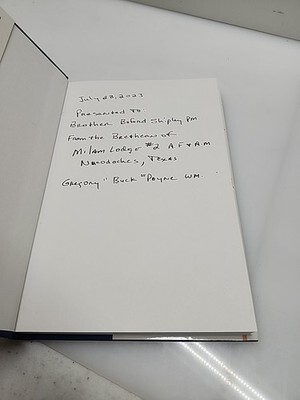 July 28, 2023
Presented To
Brother Buford Shipley PM
From the Brethern of
Milam Lodge #2 A F & A.M.
Nacodoches, Texas
Gregory "Buck" Payne WM.